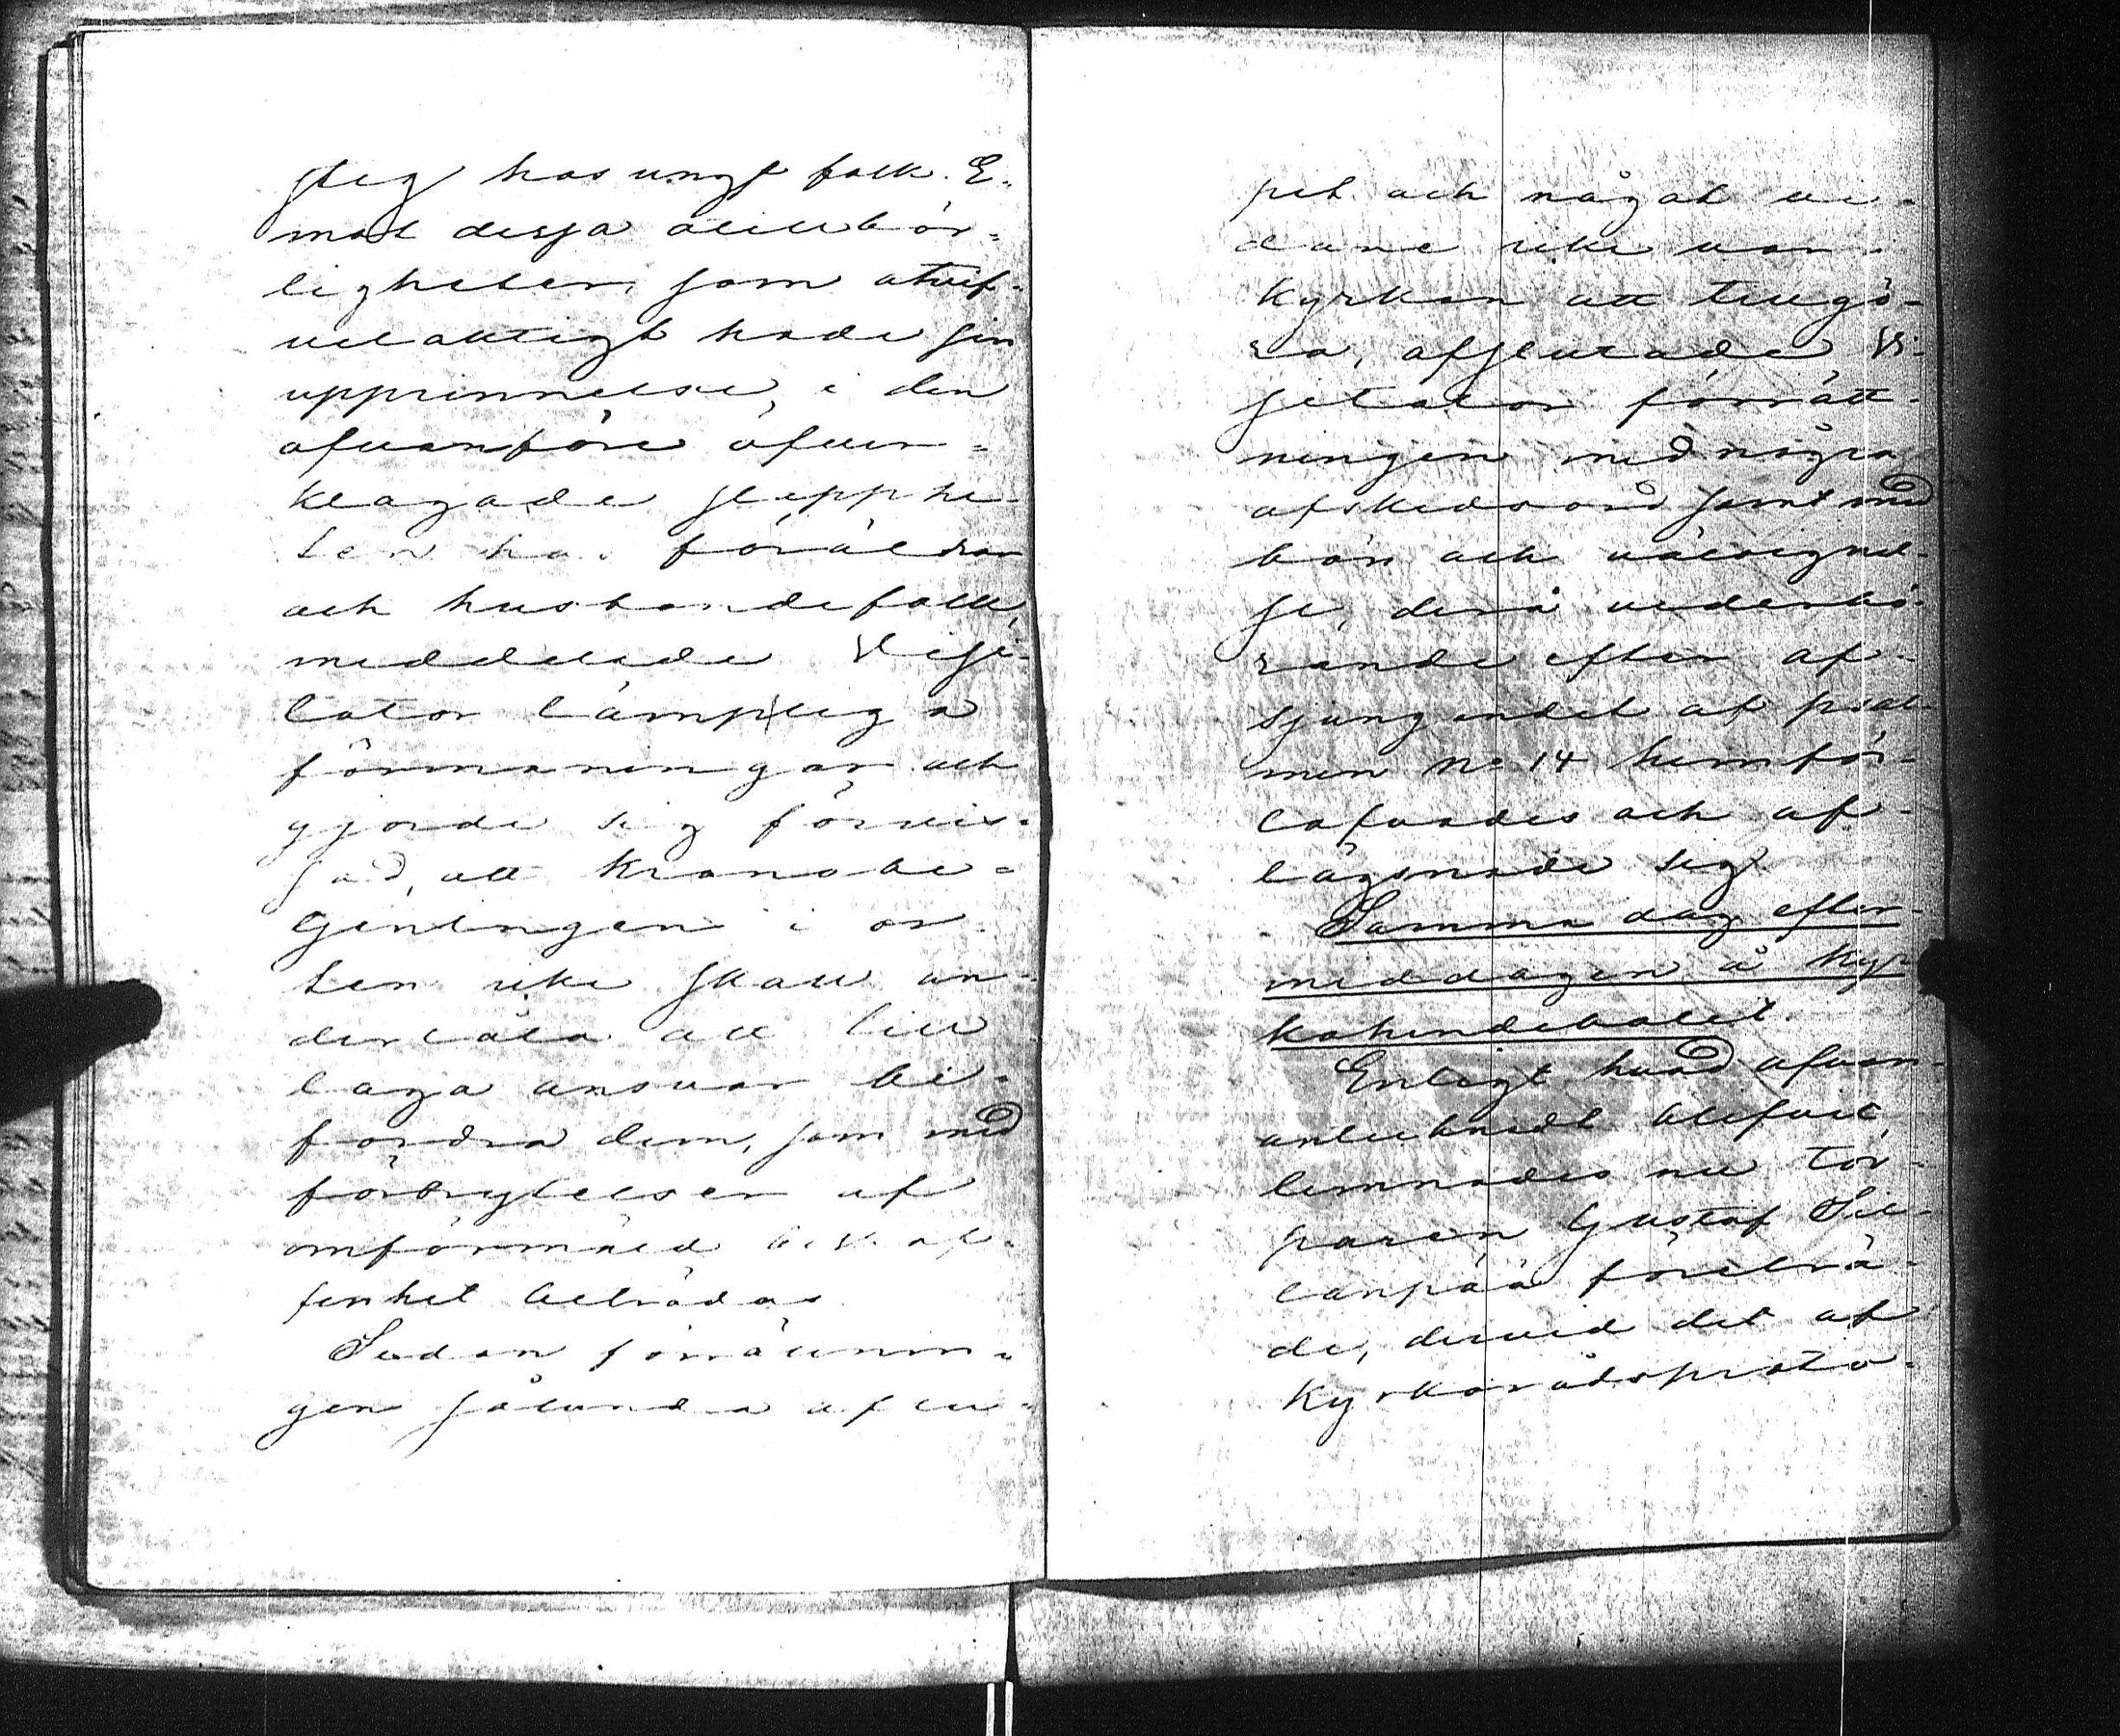 stig hos ungt folk. E-
mot dessa otillbör-
ligheter, som otvif-
velaktigt hade sin
upprinnelse i den
ofvanföre öfver-
klagade slapphe-
ten hos föräldrar
och husbondefolk,
meddelade Visi-
tator lämpliga
förmaningar och
gjorde sig förvis-
sad, att Kronobe-
tjeningen i or-
ten icke skall un-
derlåta att till
laga ansvar be-
fordra dem, som med
förbrytelser af
omförmäld beskaf-
fenhet beträdas.
Sedan förrättnin-
gen sålunda aflu-
pit och något vi-
dare icke var i
Kyrkan att tillgö-
ra, afslutade Vi-
sitator förrätt-
ningen med några
afskedsord samt med
bön och välsignel-
se, derå vederbö-
rande efter af-
sjungandet af psal-
men No 14 hemför-
lofvades och af-
lägsnade sig.
Samma dag efter-
middagen å Kyr-
koherdebolet.
Enligt hvad ofvan
antecknadt blifvit,
lemnades nu Tor-
paren Gustaf Sil-
lanpää företrä-
de, dervid det af
Kyrkorådsproto-